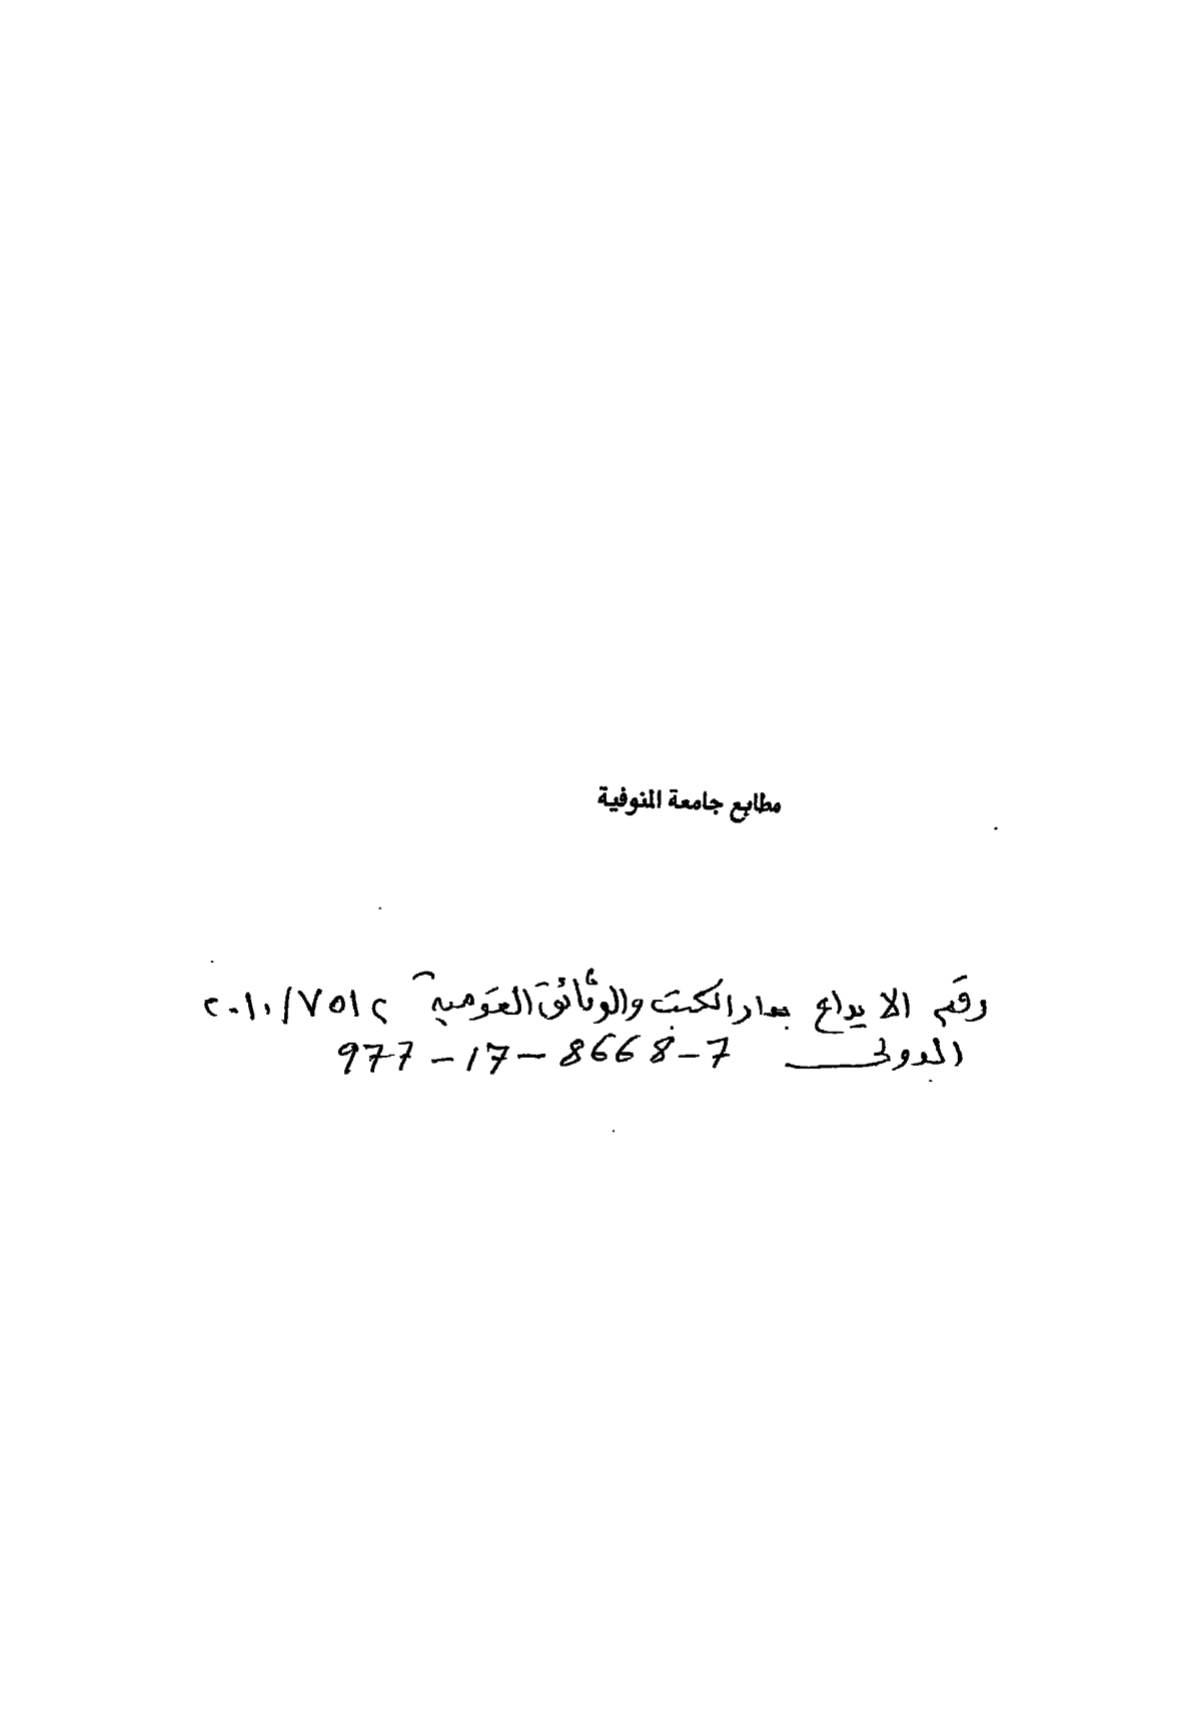 مطابع جامعة المنوفية
رقم الايداع بدار الكتب والوثائق القومية ٢٠١٠/٧٥١٢
الدولى 977-17-8668-7